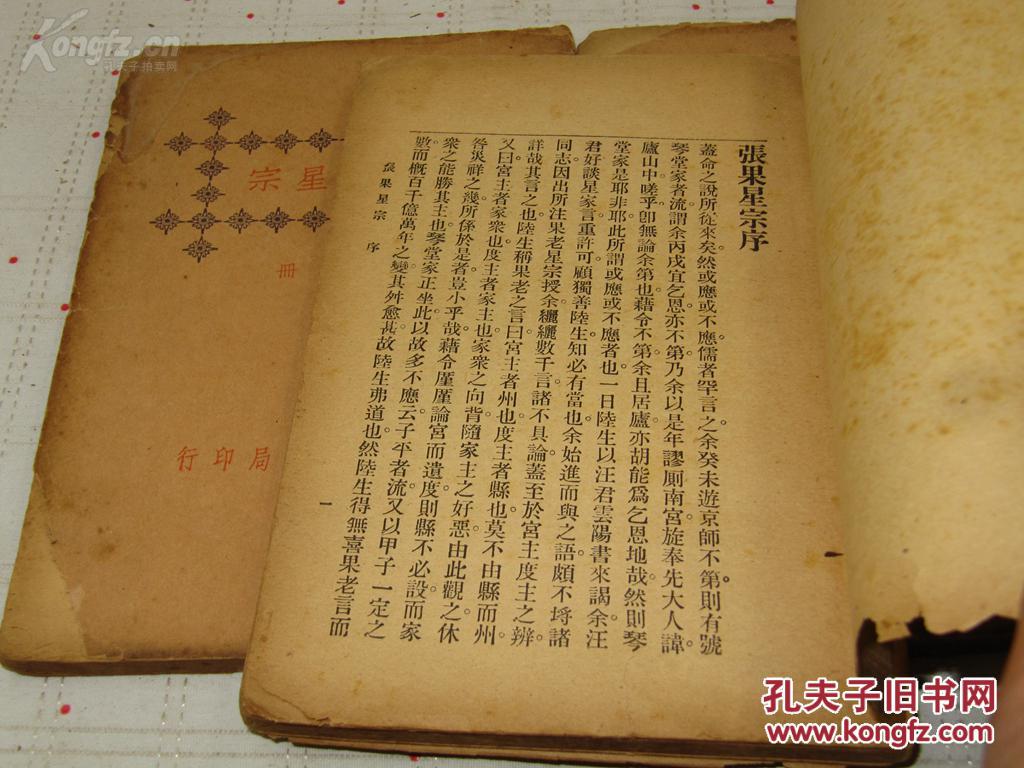 張果星宗序
蓋命之說所從來矣。然或應或不應。儒者罕言之。余癸未遊京師不第。則有號
琴堂家者流。謂余丙戌宜乞恩。亦不第。乃余以是年謬厠南宮。旋奉先大人諱。
廬山中。嗟乎。卽無論余第也。藉令不第。余且居廬。亦胡能爲乞恩地哉。然則琴
堂家是耶非耶。此所謂或應或不應者也。一日陸生以汪君雲陽書來謁余。汪
君好談星家言。重許可。顧獨善陸生。知必有當也。余始進而與之語。頗不埒諸
同志。因出所注果老星宗授余。纚纚數千言。諸不具論。蓋至於宮主度主之辨。
詳哉其言之也。陸生稱果老之言曰。宮主者州也。度主者縣也。莫不由縣而州。
又曰。宮主者家衆也。度主者家主也。家衆之向背。隨家主之好惡。由此觀之。休
咎災祥之幾。所係於是者。豈小乎哉。藉令厪厪論宮而遺度。則縣不必設。而家
衆之能勝其主也。琴堂家正坐此。以故多不應云。子平者流。又以甲子一定之
數。而槪百千億萬年之變。其舛愈甚。故陸生弗道也。然陸生得無喜果老言而
張果星宗 序
一
星宗
冊
局印行
Kongfz.cn
孔夫子拍卖网
孔夫子旧书网
www.kongfz.com